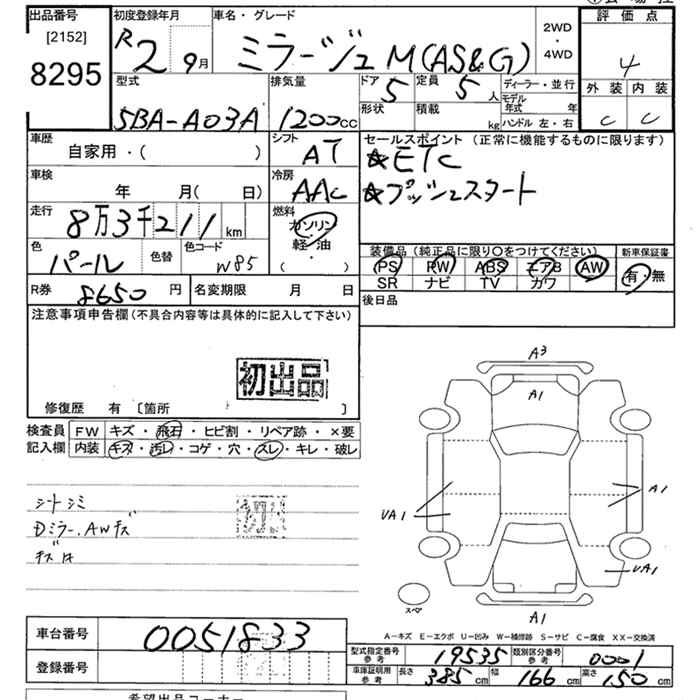 出品番号
[2152]
8295
初度登録年月
R2 9月
車名・グレード
ミラージュ M(AS&G)
2WD
・
4WD
評価点
4
外装 内装
C C
型式
5BA-A03A
排気量
1200cc
ドア
5
形状
定員
5人
積載
kg
ディーラー・並行
モデル年式 年
ハンドル 左・右
車歴
自家用・( )
シフト
AT
車検
年 月( 日)
冷房
AAC
走行
8万3千211km
燃料
ガソリン
軽・油
( ・ )
色
パール
色替
色コード
W85
R券
8650円
名変期限 月 日
セールスポイント (正常に機能するものに限ります)
☆ETC
☆プッシュスタート
装備品(純正品に限り○をつけてください)
PS PW ABS エアB AW
SR ナビ TV カワ
新車保証書
有・無
後日品
注意事項申告欄(不具合内容等は具体的に記入して下さい)
初出品
修復歴 有 〔箇所 〕
検査員
記入欄
FW キズ・飛石・ヒビ割・リペア跡・×要
内装 キズ・汚レ・コゲ・穴・スレ・キレ・破レ
シートシミ
Dミラー.AWキズ
A3
A1
A1
UA1
UA1
スペア
A1
A-キズ E-エクボ U-凹み W-補修跡 S-サビ C-腐食 XX-交換済
車台番号
0051833
登録番号
型式指定番号
参考
19535
類別区分番号
参考
0001
車庫証明用
参考
長さ 385cm 幅 166cm 高さ 150cm
希望出品コーナー